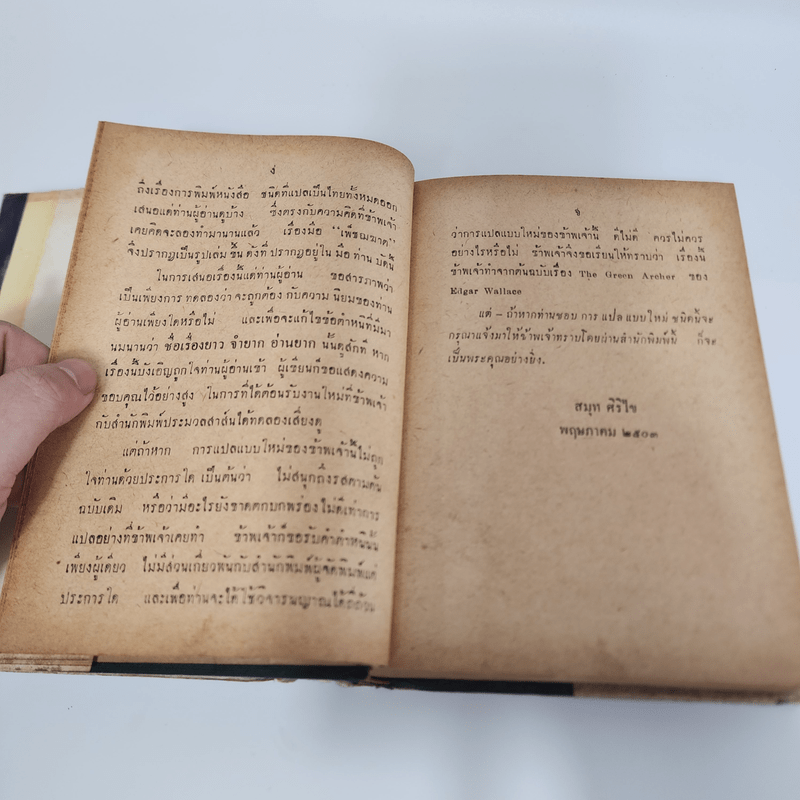 ง
ถึงเรื่องการพิมพ์หนังสือ ชนิดที่แปลเป็นไทยทั้งหมดออก
เสนอแด่ท่านผู้อ่านดูบ้าง ซึ่งตรงกับความคิดที่ข้าพเจ้า
เคยคิดจะลองทำมานานแล้ว เรื่องมือ “เพ็ชฌฆาต”
จึงปรากฏเป็นรูปเล่ม ขึ้น ดังที่ ปรากฏอยู่ใน มือ ท่าน บัดนี้
ในการเสนอเรื่องนี้แด่ท่านผู้อ่าน ขอสารภาพว่า
เป็นเพียงการ ทดลองว่า จะถูกต้อง กับความ นิยมของท่าน
ผู้อ่านเพียงใดหรือไม่ และเพื่อจะแก้ไขข้อตำหนิที่มีมา
นมนานว่า ชื่อเรื่องยาว จำยาก อ่านยาก นั้นดูสักที หาก
เรื่องนี้บังเอิญถูกใจท่านผู้อ่านเข้า ผู้เขียนก็ขอแสดงความ
ขอบคุณไว้อย่างสูง ในการที่ได้ต้อนรับงานใหม่ที่ข้าพเจ้า
กับสำนักพิมพ์ประมวลสาส์นได้ทดลองเสี่ยงดู
แต่ถ้าหาก การแปลแบบใหม่ของข้าพเจ้านี้ไม่ถูก
ใจท่านด้วยประการใด เป็นต้นว่า ไม่สนุกถึงรสตามต้น
ฉบับเดิม หรือว่ามีอะไรยังขาดตกบกพร่องไม่ดีเท่าการ
แปลอย่างที่ข้าพเจ้าเคยทำ ข้าพเจ้าก็ขอรับคำตำหนินั้น
เพียงผู้เดียว ไม่มีส่วนเกี่ยวพันกับสำนักพิมพ์ผู้จัดพิมพ์แต่
ประการใด และเพื่อท่านจะได้ใช้วิจารณญาณได้ถี่ถ้วน
จ
ว่าการแปลแบบใหม่ของข้าพเจ้านี้ ดีไม่ดี ควรไม่ควร
อย่างไรหรือไม่ ข้าพเจ้าจึงขอเรียนให้ทราบว่า เรื่องนี้
ข้าพเจ้าทำจากต้นฉบับเรื่อง The Green Archer ของ
Edgar Wallace
แต่ – ถ้าหากท่านชอบ การ แปล แบบใหม่ ชนิดนี้จะ
กรุณาแจ้งมาให้ข้าพเจ้าทราบโดยผ่านสำนักพิมพ์นี้ ก็จะ
เป็นพระคุณอย่างยิ่ง.
สมุท ศิริไข
พฤษภาคม ๒๕๐๓